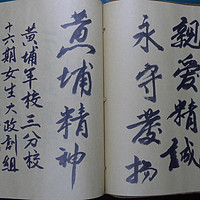 親愛精誠
永守發揚
黃埔精神
黃埔軍校三分校
十六期女生大政創組